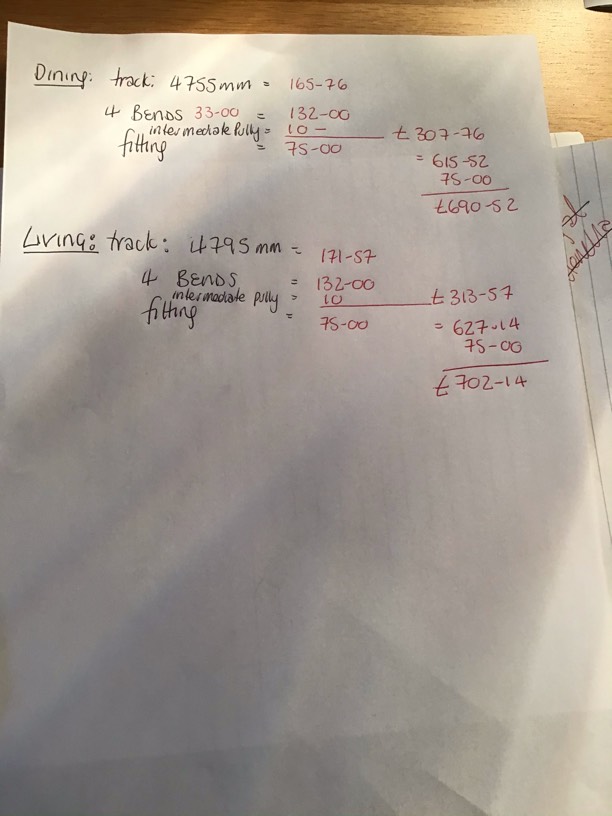 Dining: track: 4755mm = 165-76
4 BENDS 33-00 = 132-00
intermediate pully = 10 - £307-76
fitting = 75-00
= 615-52
75-00
£690-52
Living: track: 4795mm = 171-57
4 BENDS = 132-00
intermediate pully = 10 £313-57
fitting = 75-00
= 627.14
75-00
£702-14